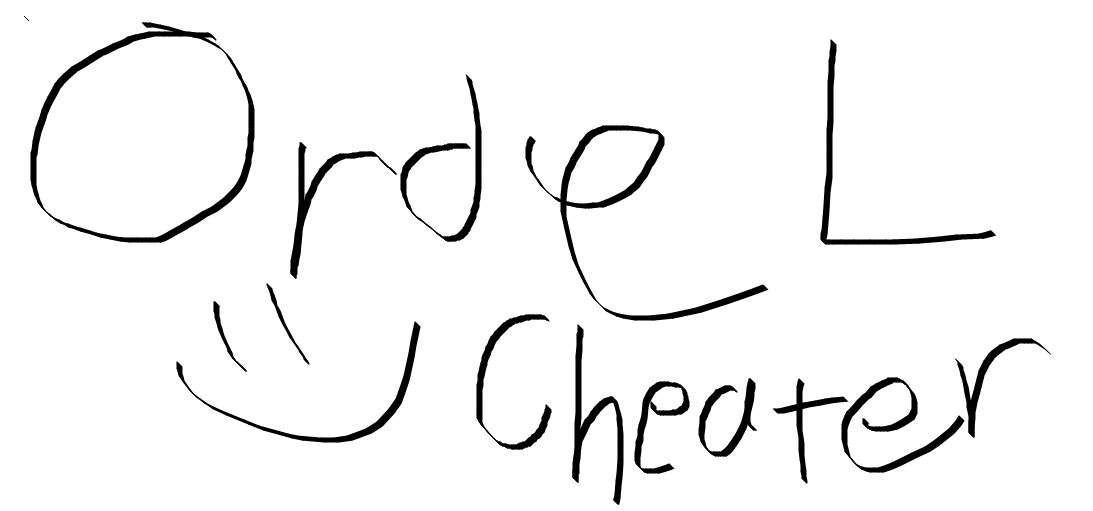 Orde L
Cheater